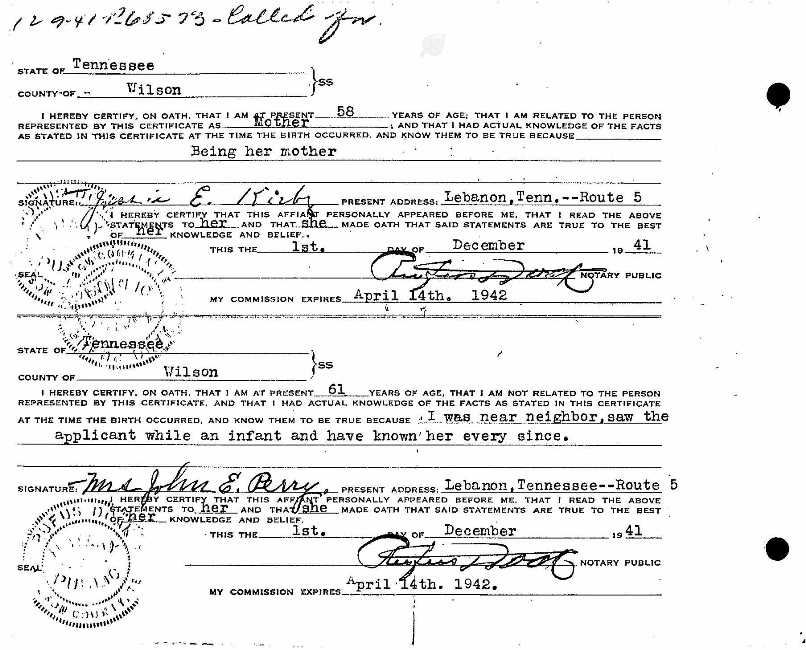 Called for.
STATE OF Tennessee
COUNTY OF - Wilson
SS
I HEREBY CERTIFY, ON OATH, THAT I AM AT PRESENT 58 YEARS OF AGE; THAT I AM RELATED TO THE PERSON
REPRESENTED BY THIS CERTIFICATE AS Mother; AND THAT I HAD ACTUAL KNOWLEDGE OF THE FACTS
AS STATED IN THIS CERTIFICATE AT THE TIME THE BIRTH OCCURRED, AND KNOW THEM TO BE TRUE BECAUSE
Being her mother
SIGNATURE: E. Kirby PRESENT ADDRESS: Lebanon,Tenn.--Route 5
I HEREBY CERTIFY THAT THIS AFFIANT PERSONALLY APPEARED BEFORE ME, THAT I READ THE ABOVE
STATEMENTS TO her AND THAT she MADE OATH THAT SAID STATEMENTS ARE TRUE TO THE BEST
OF her KNOWLEDGE AND BELIEF.
THIS THE 1st. DAY OF December 1941
SEAL NOTARY PUBLIC
MY COMMISSION EXPIRES April 14th. 1942
STATE OF Tennessee
COUNTY OF Wilson
SS
I HEREBY CERTIFY, ON OATH, THAT I AM AT PRESENT 61 YEARS OF AGE, THAT I AM NOT RELATED TO THE PERSON
REPRESENTED BY THIS CERTIFICATE, AND THAT I HAD ACTUAL KNOWLEDGE OF THE FACTS AS STATED IN THIS CERTIFICATE
AT THE TIME THE BIRTH OCCURRED, AND KNOW THEM TO BE TRUE BECAUSE I was near neighbor,saw the
applicant while an infant and have known her every since.
SIGNATURE: Mrs John E. Perry, PRESENT ADDRESS: Lebanon,Tennessee--Route 5
I HEREBY CERTIFY THAT THIS AFFIANT PERSONALLY APPEARED BEFORE ME, THAT I READ THE ABOVE
STATEMENTS TO her AND THAT she MADE OATH THAT SAID STATEMENTS ARE TRUE TO THE BEST
OF her KNOWLEDGE AND BELIEF.
THIS THE 1st. DAY OF December 1941
SEAL Rufus NOTARY PUBLIC
MY COMMISSION EXPIRES April 14th. 1942.